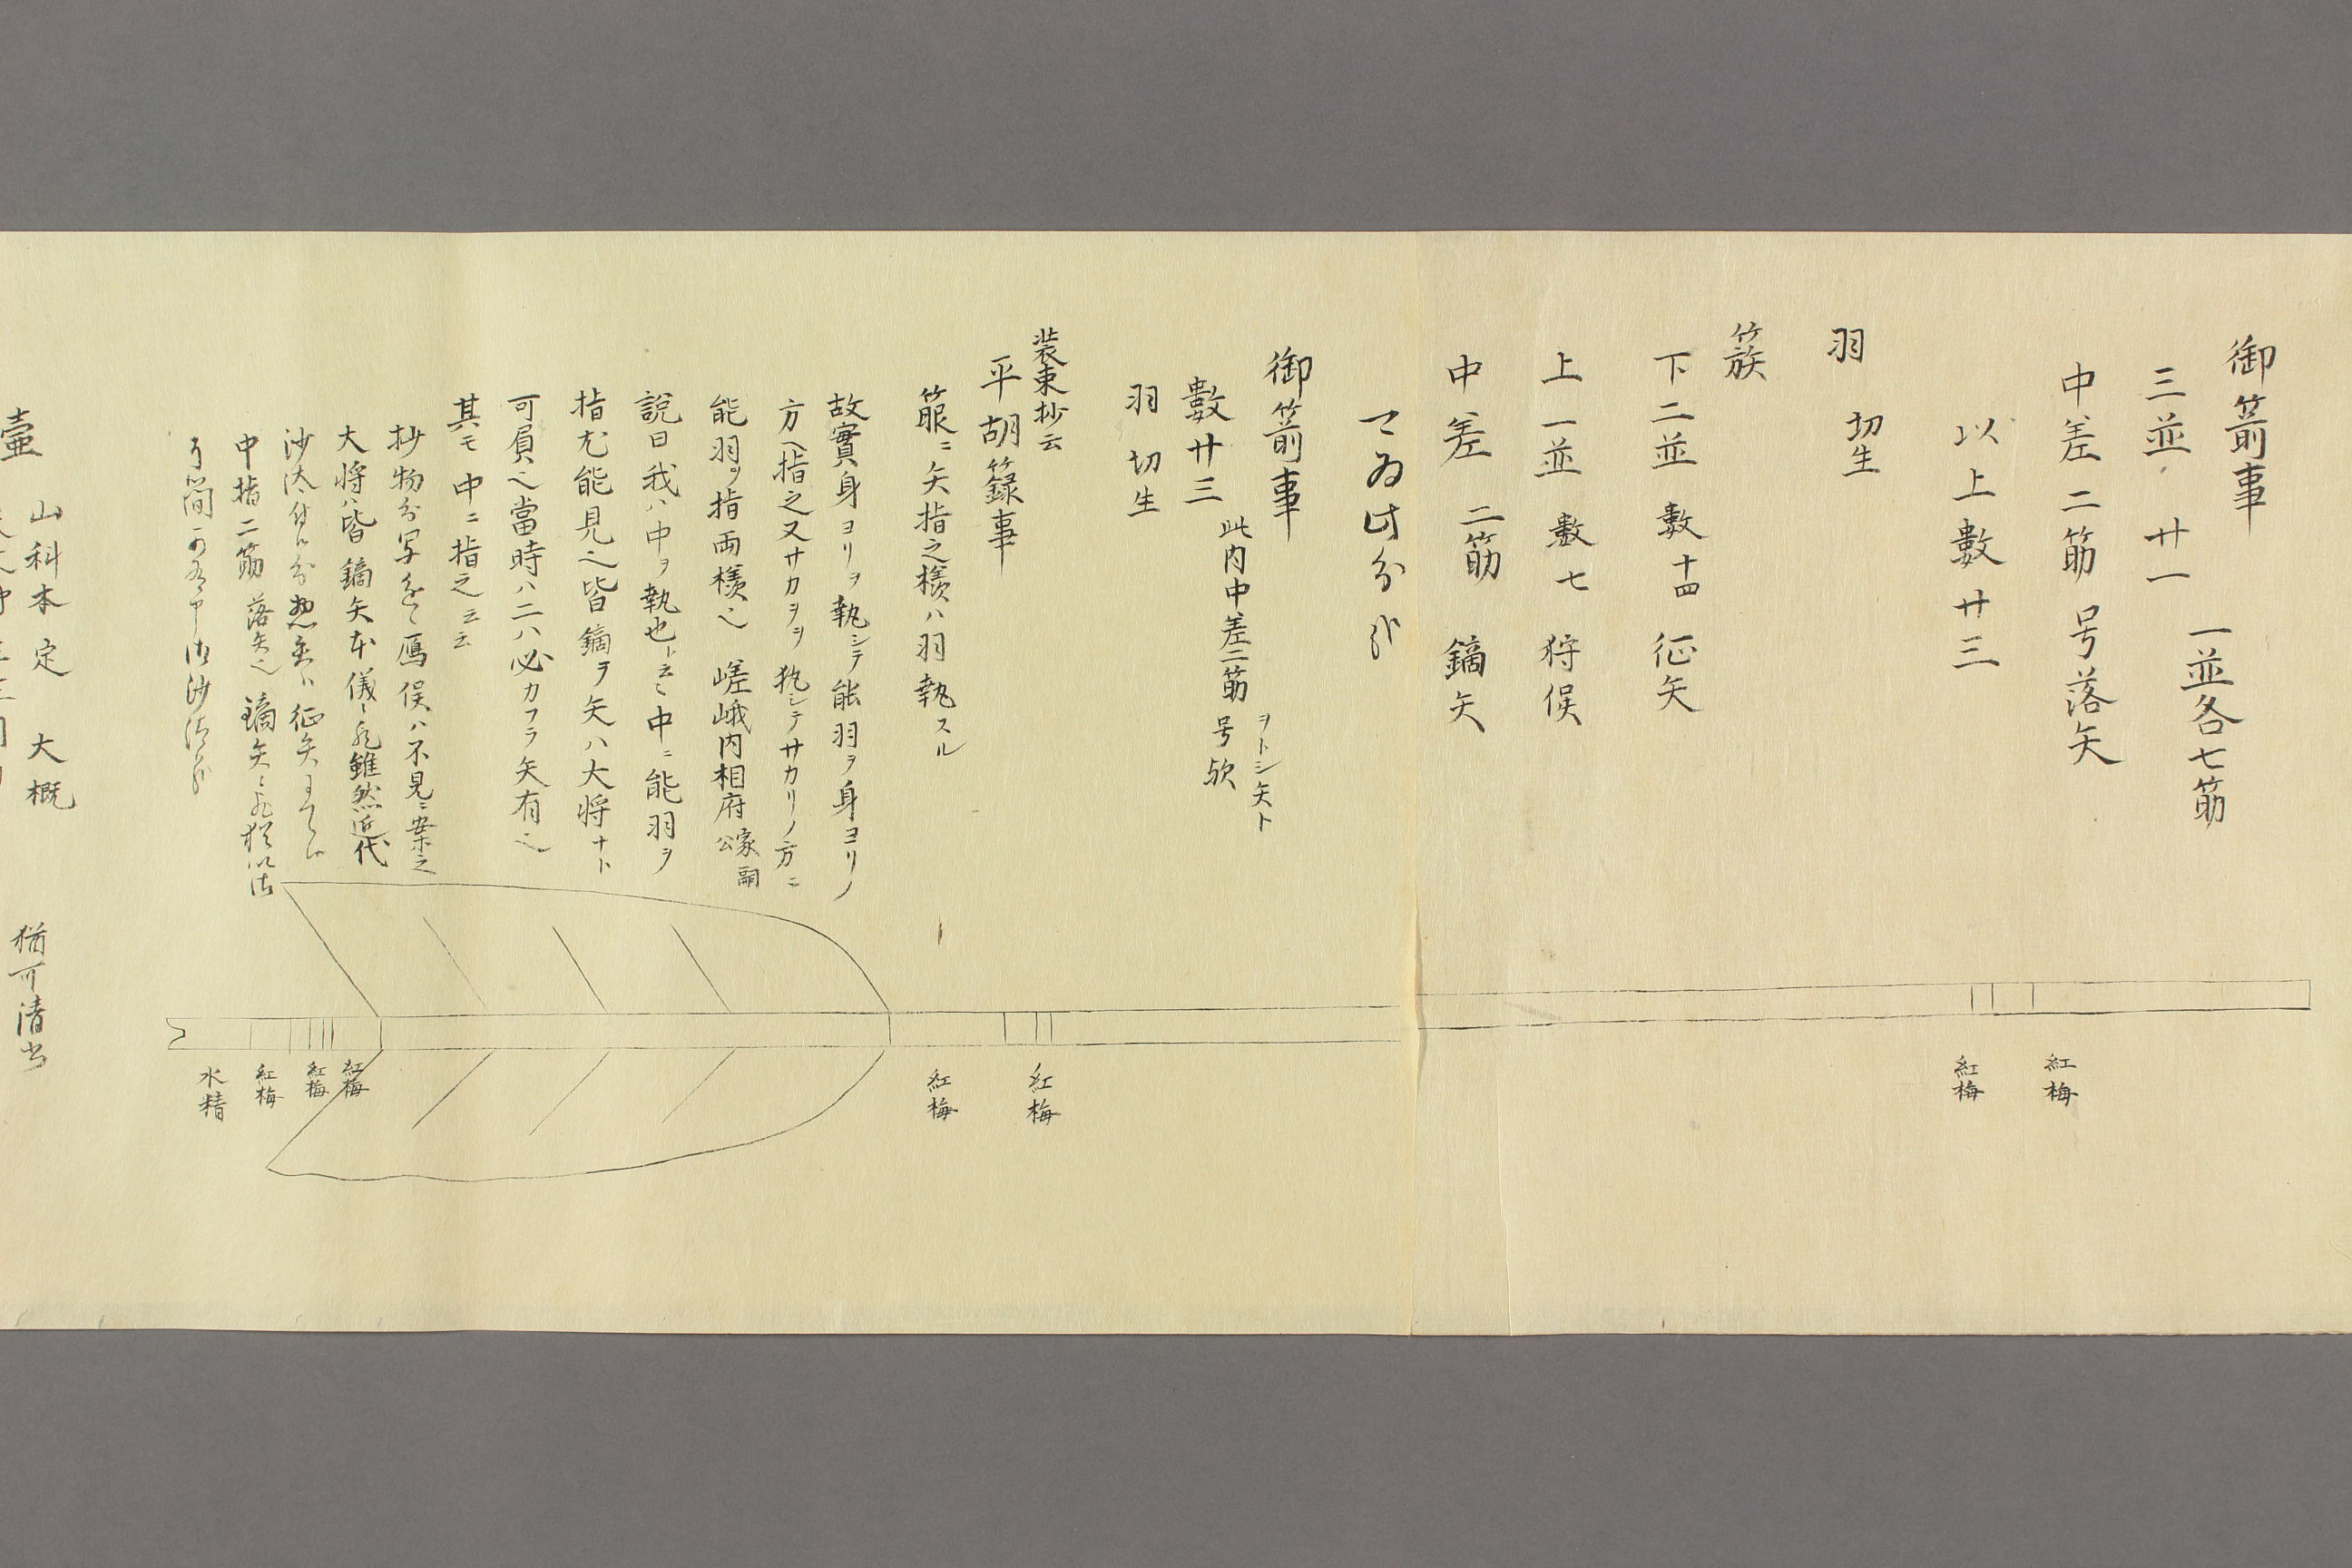 御箭事
三並 廿一 一並各七筋
中差二筋 号落矢
以上數廿三
羽 切生
簇
下二並 數十四 征矢
上一並 數七 狩俣
中差 二筋 鏑矢
御箭事
數廿三 此内中差二筋 ヲトシ矢ト号欤
羽切生
装束抄云
平胡籙事
箙ニ矢指之様ハ羽執スル
故實身ヨリヲ執シテ能羽ヲ身ヨリノ
方ヘ指之又サカヲヲ執シテサカリノ方ニ
能羽ヲ指両様也 嵯峨内相府公家嗣
説曰我ハ中ヲ執也ト云々中ニ能羽ヲ
指尤能見之皆鏑ヲ矢ハ大将ナト
可負之當時ハ二ハ必カフラ矢有之
其モ中ニ指之云云
抄物分写之 鳫俣ハ不見ニ案之
大将ハ皆鏑矢本儀 雖然近代
沙汰 分 征矢
中指二筋落矢也 鏑矢
間 沙汰
山科本定 大概 猶可清書
壷
紅梅
紅梅
紅梅
紅梅
紅梅
紅梅
紅梅
水精